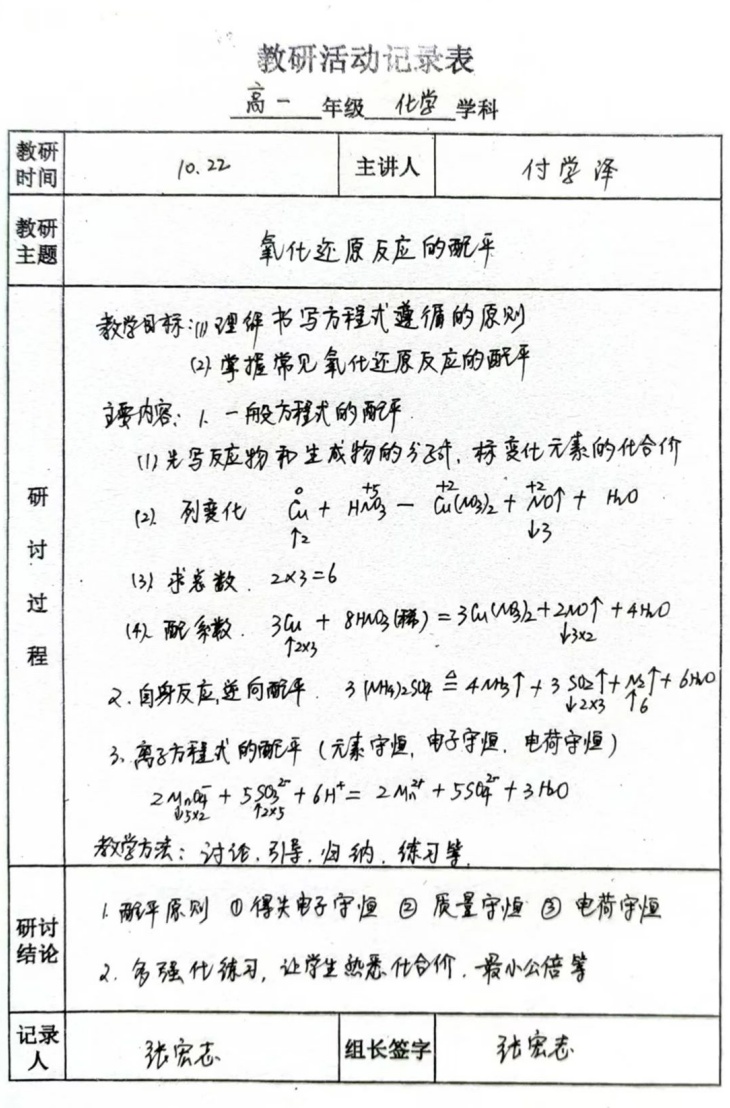 教研活动记录表
高一 年级 化学 学科
教研时间 10.22 主讲人 付学泽
教研主题 氧化还原反应的配平
研讨过程
教学目标:(1)理解书写方程式遵循的原则
(2)掌握常见氧化还原反应的配平
主要内容: 1. 一般方程式的配平.
(1)先写反应物和生成物的分子式, 标变化元素的化合价
0 +5 +2 +2
(2) 列变化 Cu + HNO₃ — Cu(NO₃)₂ + NO↑ + H₂O
↑2 ↓3
(3) 求总数. 2×3=6
(4) 配系数. 3Cu + 8HNO₃(稀) = 3Cu(NO₃)₂ + 2NO↑ + 4H₂O
↑2×3 ↓3×2
2. 自身反应,逆向配平. 3(NH₄)₂SO₄ ≜ 4NH₃↑ + 3SO₂↑ + N₂↑ + 6H₂O
↓2×3 ↑6
3. 离子方程式的配平 (元素守恒, 电子守恒, 电荷守恒)
2MnO₄⁻ + 5SO₃²⁻ + 6H⁺ = 2Mn²⁺ + 5SO₄²⁻ + 3H₂O
↓5×2 ↑2×5
教学方法: 讨论, 引导, 归纳, 练习等.
研讨结论
1. 配平原则 ① 得失电子守恒 ② 质量守恒 ③ 电荷守恒
2. 多强化练习, 让学生熟悉化合价, 最小公倍等
记录人 张宏志 组长签字 张宏志